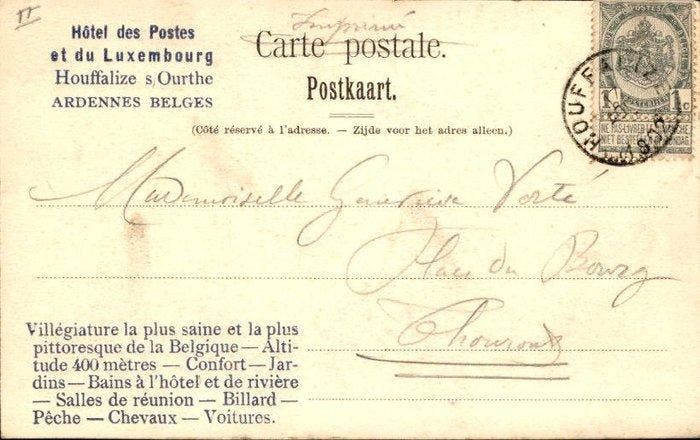 Hôtel des Postes
et du Luxembourg
Houffalize s/Ourthe
ARDENNES BELGES
Imprimé
Carte postale.
Postkaart.
(Côté réservé à l'adresse. — Zijde voor het adres alleen.)
HOUFFALIZE
1 c. 1 c.
NE PAS LIVRER LE DIMANCHE
NIET BESTELLEN OP ZONDAG
Mademoiselle Geneviève
Place du Bourg
Villégiature la plus saine et la plus
pittoresque de la Belgique — Alti-
tude 400 mètres — Confort — Jar-
dins — Bains à l'hôtel et de rivière
— Salles de réunion — Billard —
Pêche — Chevaux — Voitures.